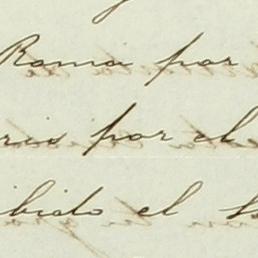 Roma por
rio por el
ibido el